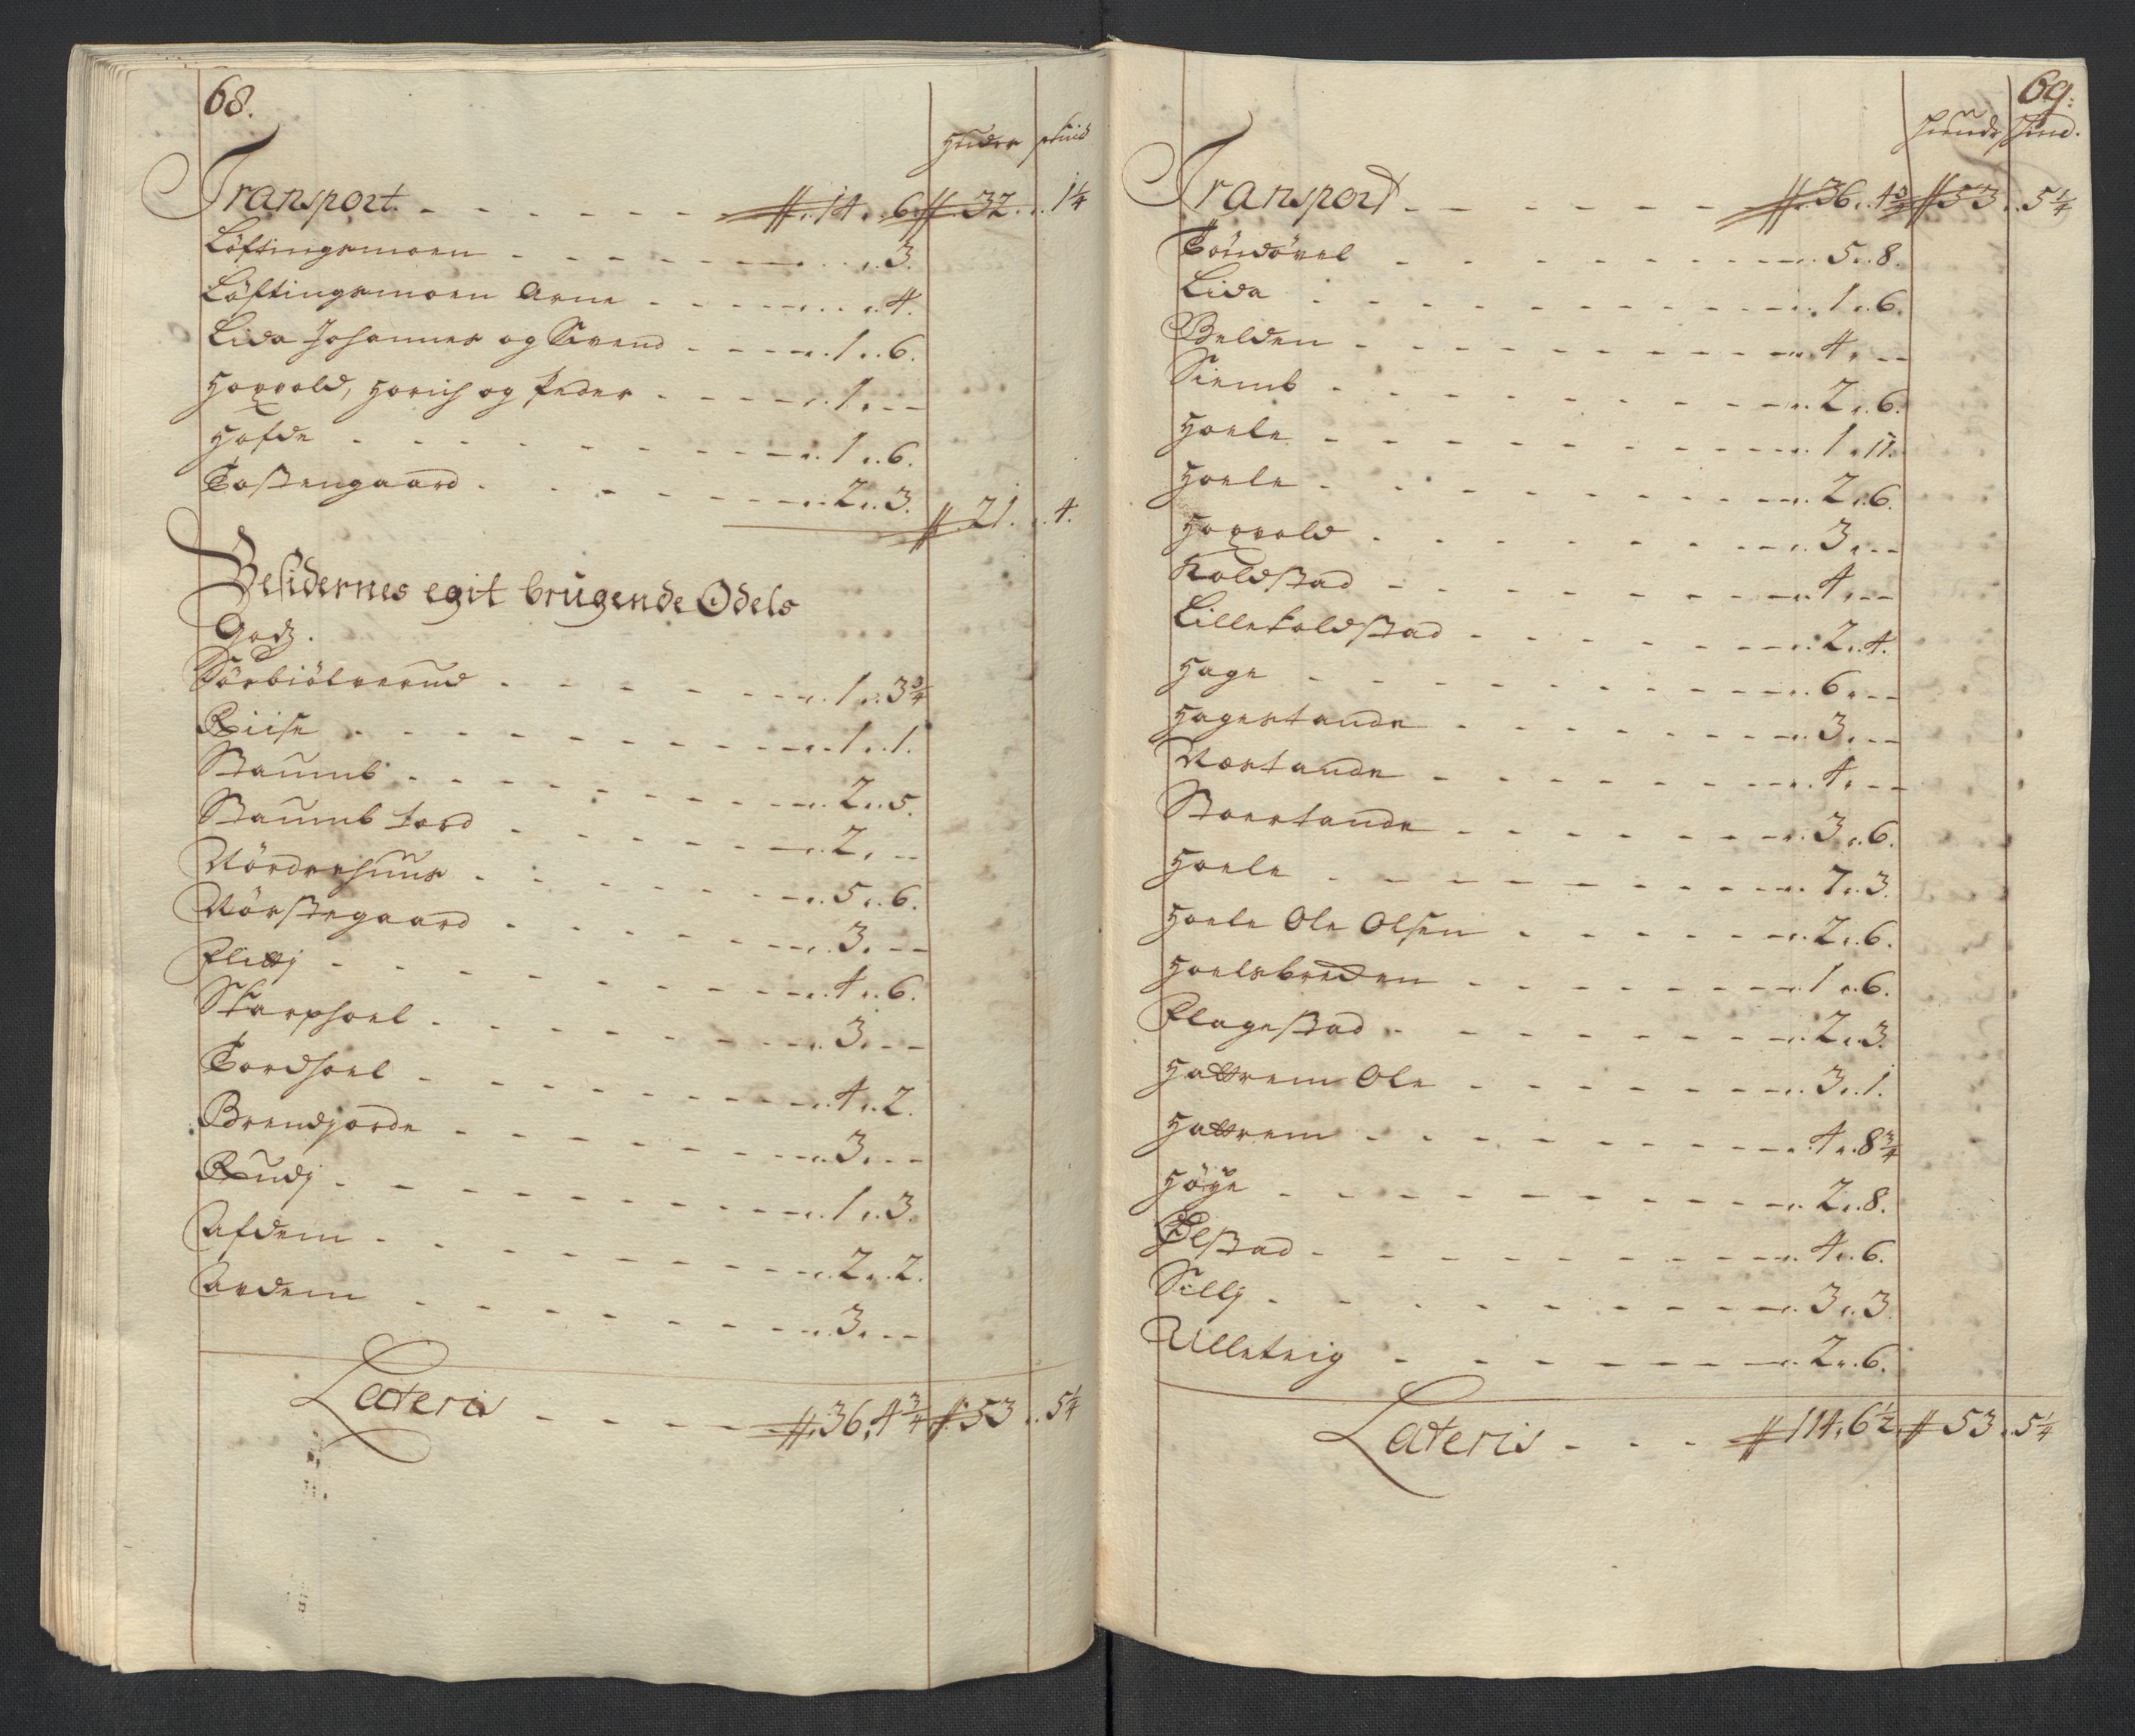 68.
Huder skind
Transport. - - - - - - #. 14. 6. #. 32. . 1 1/4
Löftingsmoen - - - - - - . 3.
Löftingsmoen Arne - - - - . 4.
Lida Johannes og Svend - - - . 1 . 6.
Hoxvold, Horich og Peder - - - . 1 . - -
Hofde - - - - - - - . 1 . 6.
Tostengaard - - - - - - . 2 . 3.
#. 21. . 4.
Besidernes egit brugende Odels
Godz.
Sörbiölverud - - - - - . 1 . 3 3/4
Riise - - - - - - - . 1 . 1.
Staumb - - - - - - . 2 . 5.
Staumb Tord - - - - - . 2 . - -
Nördrehuus - - - - - . 5 . 6.
Nörstegaard - - - - - . 3 . - -
Flittj - - - - - - . 4 . 6.
Skarphoel - - - - - - . 3 . - -
Tordhoel - - - - - - . 4 . 2.
Brendjorde - - - - - - . 3 . - -
Rudj - - - - - - - . 1 . 3.
Afdem - - - - - - - . 2 . 2.
Ardem - - - - - - - . 3 . - -
Lateris - - - - #. 36. 4 3/4 #. 53 . 5 1/4
69:
Huude Skind.
Transport - - - - - #. 36. 4 3/4 #. 53 . 5 1/4
Töndövel - - - - - - . 5 . 8.
Lida - - - - - - - . 1 . 6.
Belden - - - - - - - . 4 . - -
Siemb - - - - - - - . 2 . 6.
Hoele - - - - - - - . 1 . 11.
Hoele - - - - - - - . 2 . 6.
Hoxvold - - - - - - . 3 . - -
Koldstad - - - - - - . 4 . - -
Lillekoldstad - - - - - . 2 . 4.
Hage - - - - - - - . 6 . - -
Hagestande - - - - - - . 3 . - -
Norstande - - - - - - . 4 . - -
Stoerstande - - - - - - . 3 . 6.
Hoele - - - - - - - . 7 . 3.
Hoele Ole Olsen - - - - - . 2 . 6.
Hoelsbreden - - - - - - . 1 . 6.
Flagestad - - - - - - . 2 . 3.
Hattrem Ole - - - - - - . 3 . 1.
Hattrem - - - - - - - . 4 . 8 3/4
Höye - - - - - - - . 2 . 8.
Ølstad - - - - - - - . 4 . 6.
Sillj - - - - - - - . 3 . 3
Ulleteig - - - - - - . 2 . 6.
Lateris - - - # 114. 6 1/2. # 53 . 5 1/4